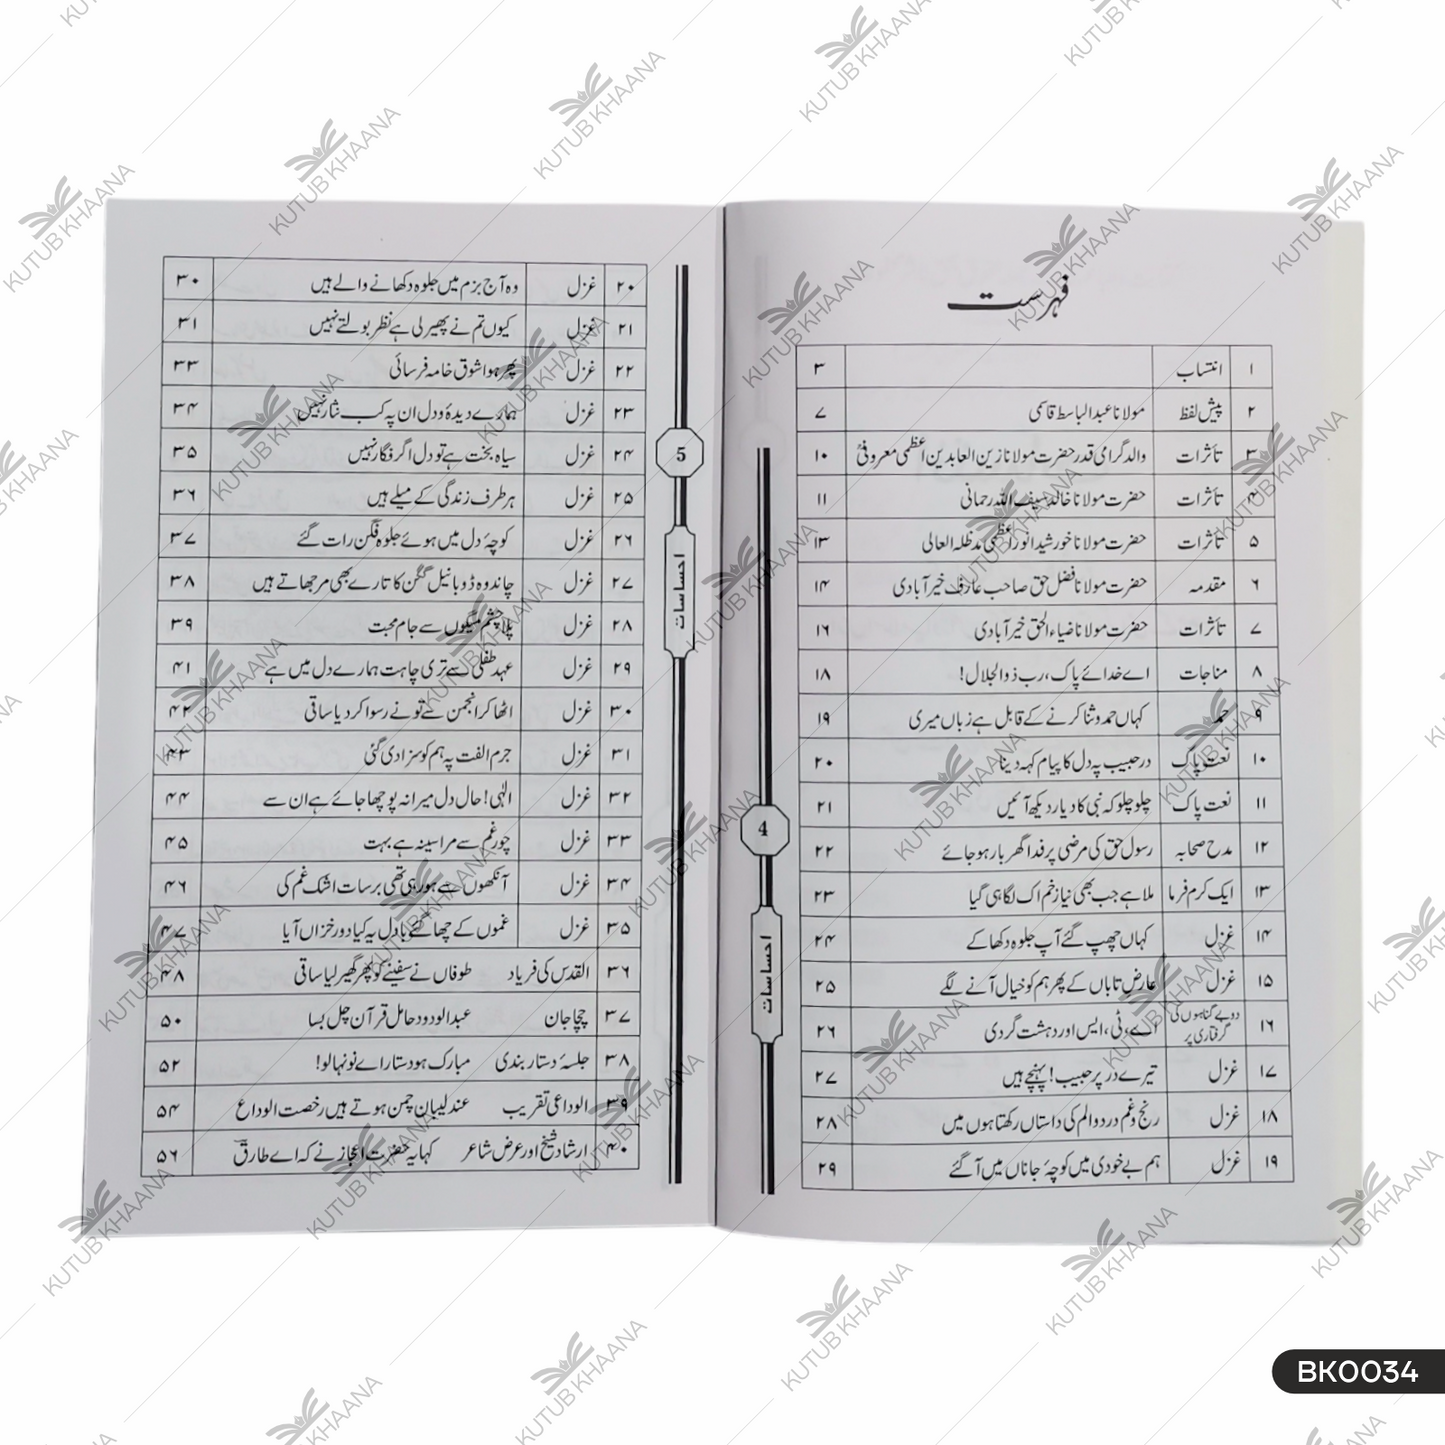 فہرست
۱ انتساب ۳
۲ پیش لفظ مولانا عبدالباسط قاسمی ۷
۳ تأثرات والد گرامی قدر حضرت مولانا زین العابدین اعظمی معروفیؒ ۱۰
۴ تأثرات حضرت مولانا خالد سیف اللہ رحمانی ۱۱
۵ تأثرات حضرت مولانا خورشید انور اعظمی مدظلہ العالی ۱۳
۶ مقدمہ حضرت مولانا فضل حق صاحب عارف خیرآبادی ۱۴
۷ تأثرات حضرت مولانا ضیاء الحق خیرآبادی ۱۶
۸ مناجات اے خدائے پاک، رب ذوالجلال! ۱۸
۹ حمد کہاں حمد و ثنا کرنے کے قابل ہے زباں میری ۱۹
۱۰ نعت پاک در حبیب پہ دل کا پیام کہہ دینا ۲۰
۱۱ نعت پاک چلو چلو کہ نبی کا دیار دیکھ آئیں ۲۱
۱۲ مدح صحابہ رسول حق کی مرضی پر فدا گھر بار ہو جائے ۲۲
۱۳ ایک کرم فرما ملا ہے جب بھی نیا زخم اک لگا ہی گیا ۲۳
۱۴ غزل کہاں چھپ گئے آپ جلوہ دکھا کے ۲۴
۱۵ غزل عارض تاباں کے پھر ہم کو خیال آنے لگے ۲۵
۱۶ دو بے گناہوں کی گرفتاری پر اے، ٹی، ایس اور دہشت گردی ۲۶
۱۷ غزل تیرے در پر حبیب! پہنچے ہیں ۲۷
۱۸ غزل رنج و غم درد و الم کی داستاں رکھتا ہوں میں ۲۸
۱۹ غزل ہم بے خودی میں کوچۂ جاناں میں آ گئے ۲۹
4
احساسات
۲۰ غزل وہ آج بزم میں جلوہ دکھانے والے ہیں ۳۰
۲۱ غزل کیوں تم نے پھیر لی ہے نظر بولتے نہیں ۳۱
۲۲ غزل پھر ہوا شوق خامہ فرسائی ۳۳
۲۳ غزل ہمارے دیدۂ و دل ان پہ کب نثار نہیں ۳۴
۲۴ غزل سیاہ بخت ہے تو دل اگر فگار نہیں ۳۵
۲۵ غزل ہر طرف زندگی کے میلے ہیں ۳۶
۲۶ غزل کوچۂ دل میں ہوئے جلوہ فگن رات گئے ۳۷
۲۷ غزل چاند وہ ڈوبا نیل گگن کا تارے بھی مرجھاتے ہیں ۳۸
۲۸ غزل پلا چشم میگوں سے جام محبت ۳۹
۲۹ غزل عہد طفلی سے تری چاہت ہمارے دل میں ہے ۴۱
۳۰ غزل اٹھا کر انجمن سے تو نے رسوا کر دیا ساقی ۴۲
۳۱ غزل جرم الفت پہ ہم کو سزا دی گئی ۴۳
۳۲ غزل الٰہی! حال دل میرا نہ پوچھا جائے ہے ان سے ۴۴
۳۳ غزل چور غم سے مرا سینہ ہے بہت ۴۵
۳۴ غزل آنکھوں سے ہو رہی تھی برسات اشک غم کی ۴۶
۳۵ غزل غموں کے چھا گئے بادل یہ کیا دور خزاں آیا ۴۷
۳۶ القدس کی فریاد طوفاں نے سفینے کو پھر گھیر لیا ساقی ۴۸
۳۷ چچا جان عبدالودود حامل قرآن چل بسا ۵۰
۳۸ جلسۂ دستار بندی مبارک ہو دستار اے نونہالو! ۵۲
۳۹ الوداعی تقریب عندلیبان چمن ہوتے ہیں رخصت الوداع ۵۴
۴۰ ارشاد شیخ اور عرض شاعر کہا یہ حضرت اعجاز نے کہ اے طارقؔ ۵۶
5
احساسات
KUTUB KHAANA
BK0034